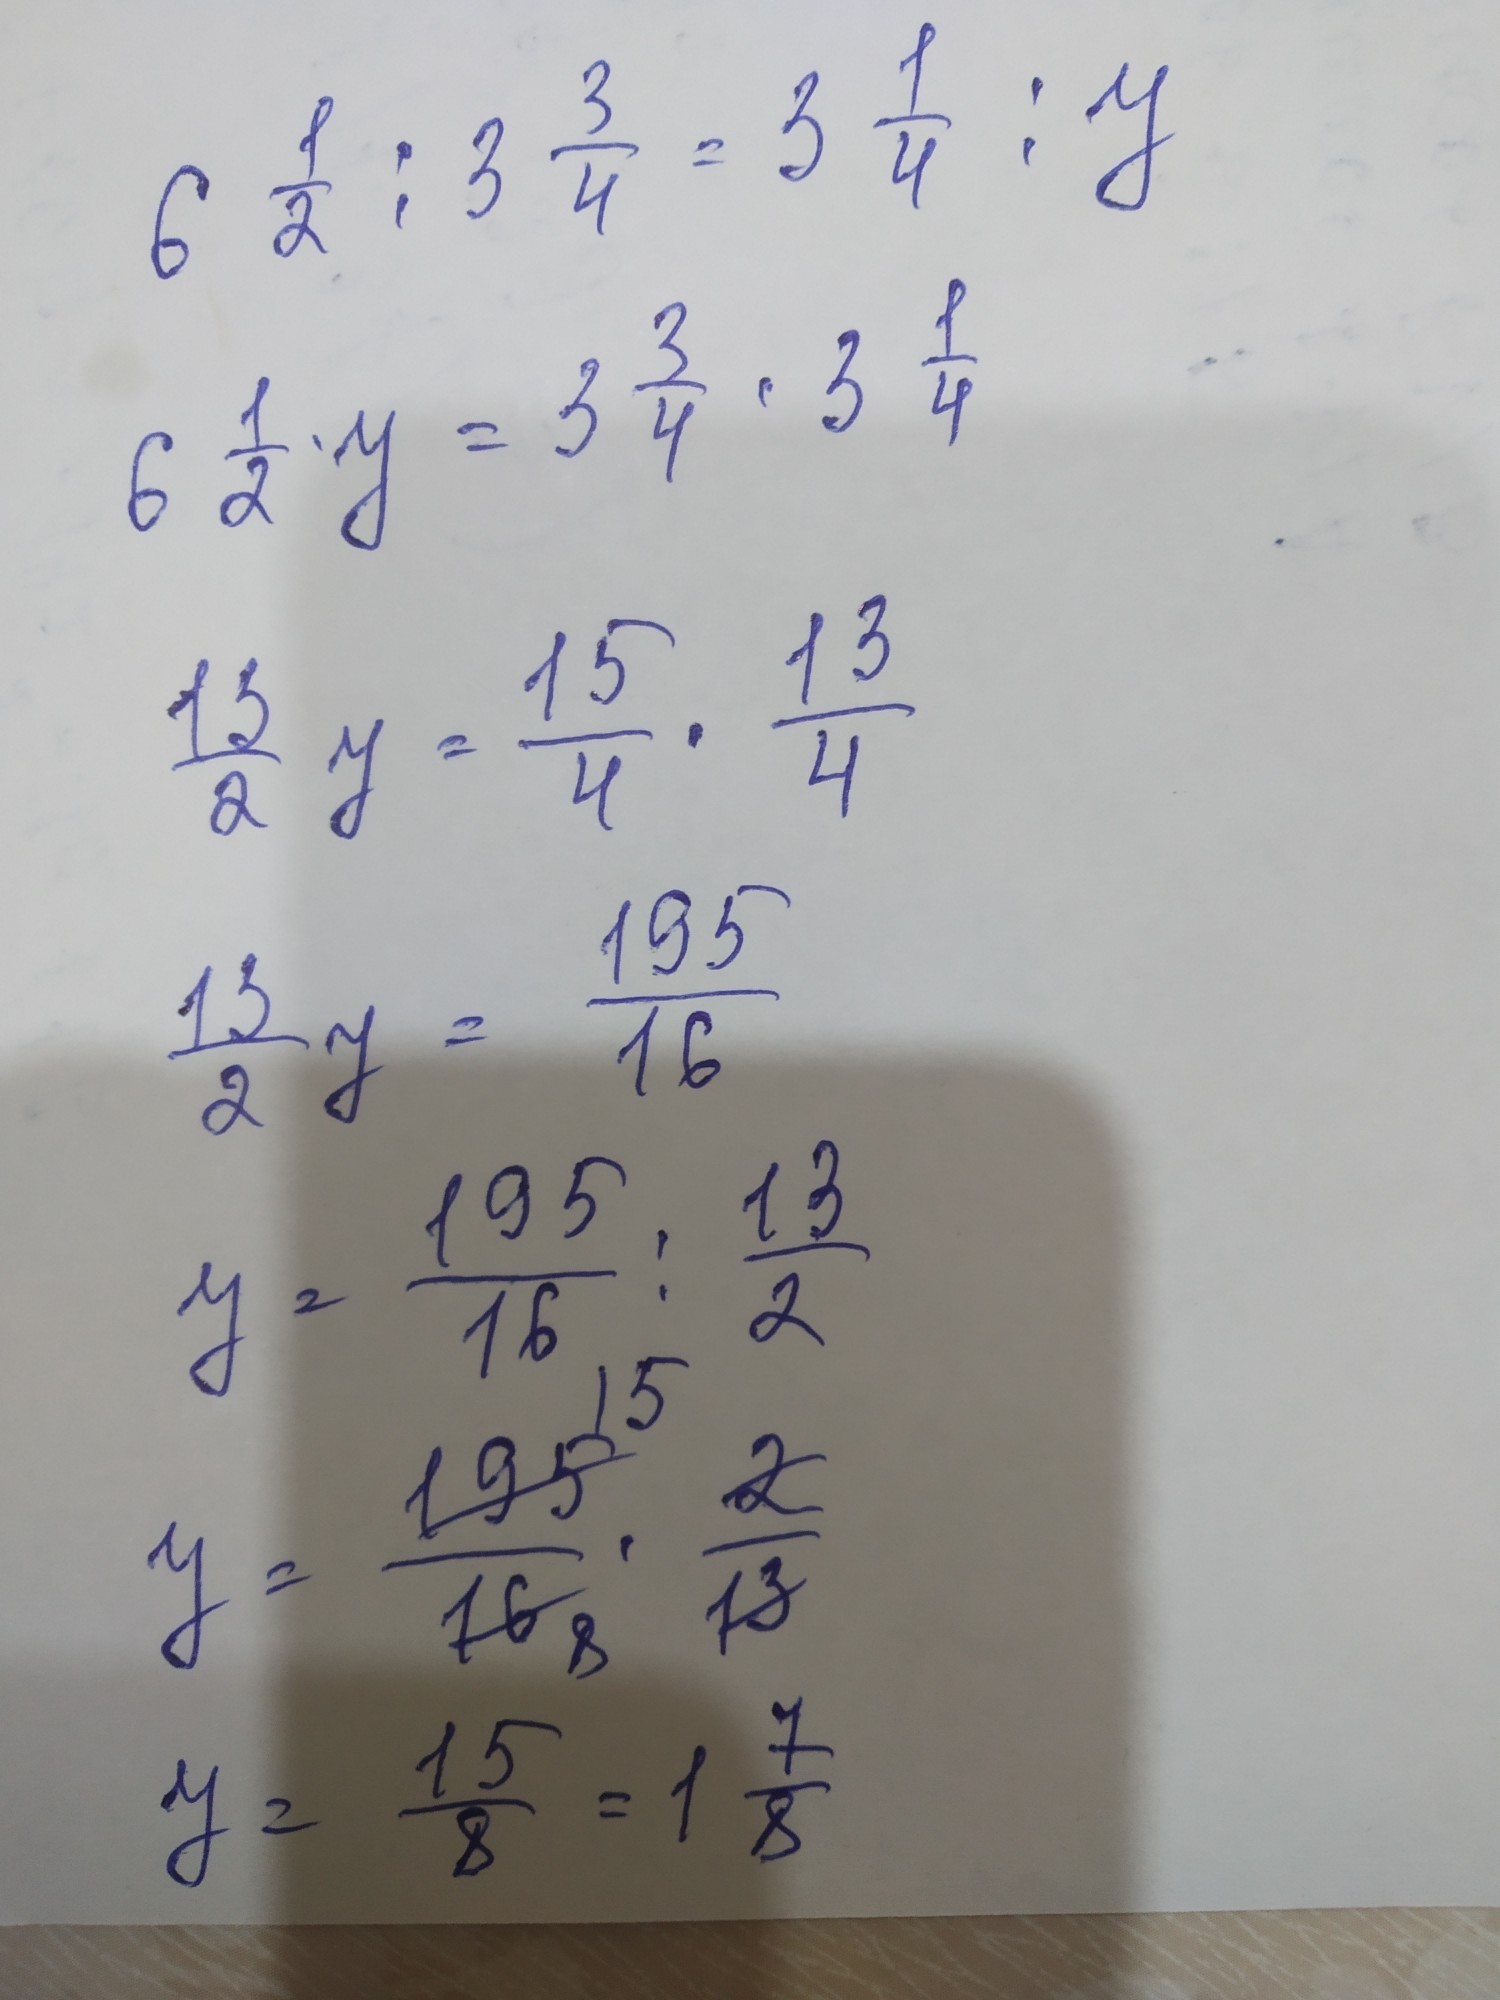 6 1/2 : 3 3/4 = 3 1/4 : y
6 1/2 · y = 3 3/4 · 3 1/4
13/2 y = 15/4 · 13/4
13/2 y = 195/16
y = 195/16 : 13/2
15
y = 195/16 · 2/13
8
y = 15/8 = 1 7/8